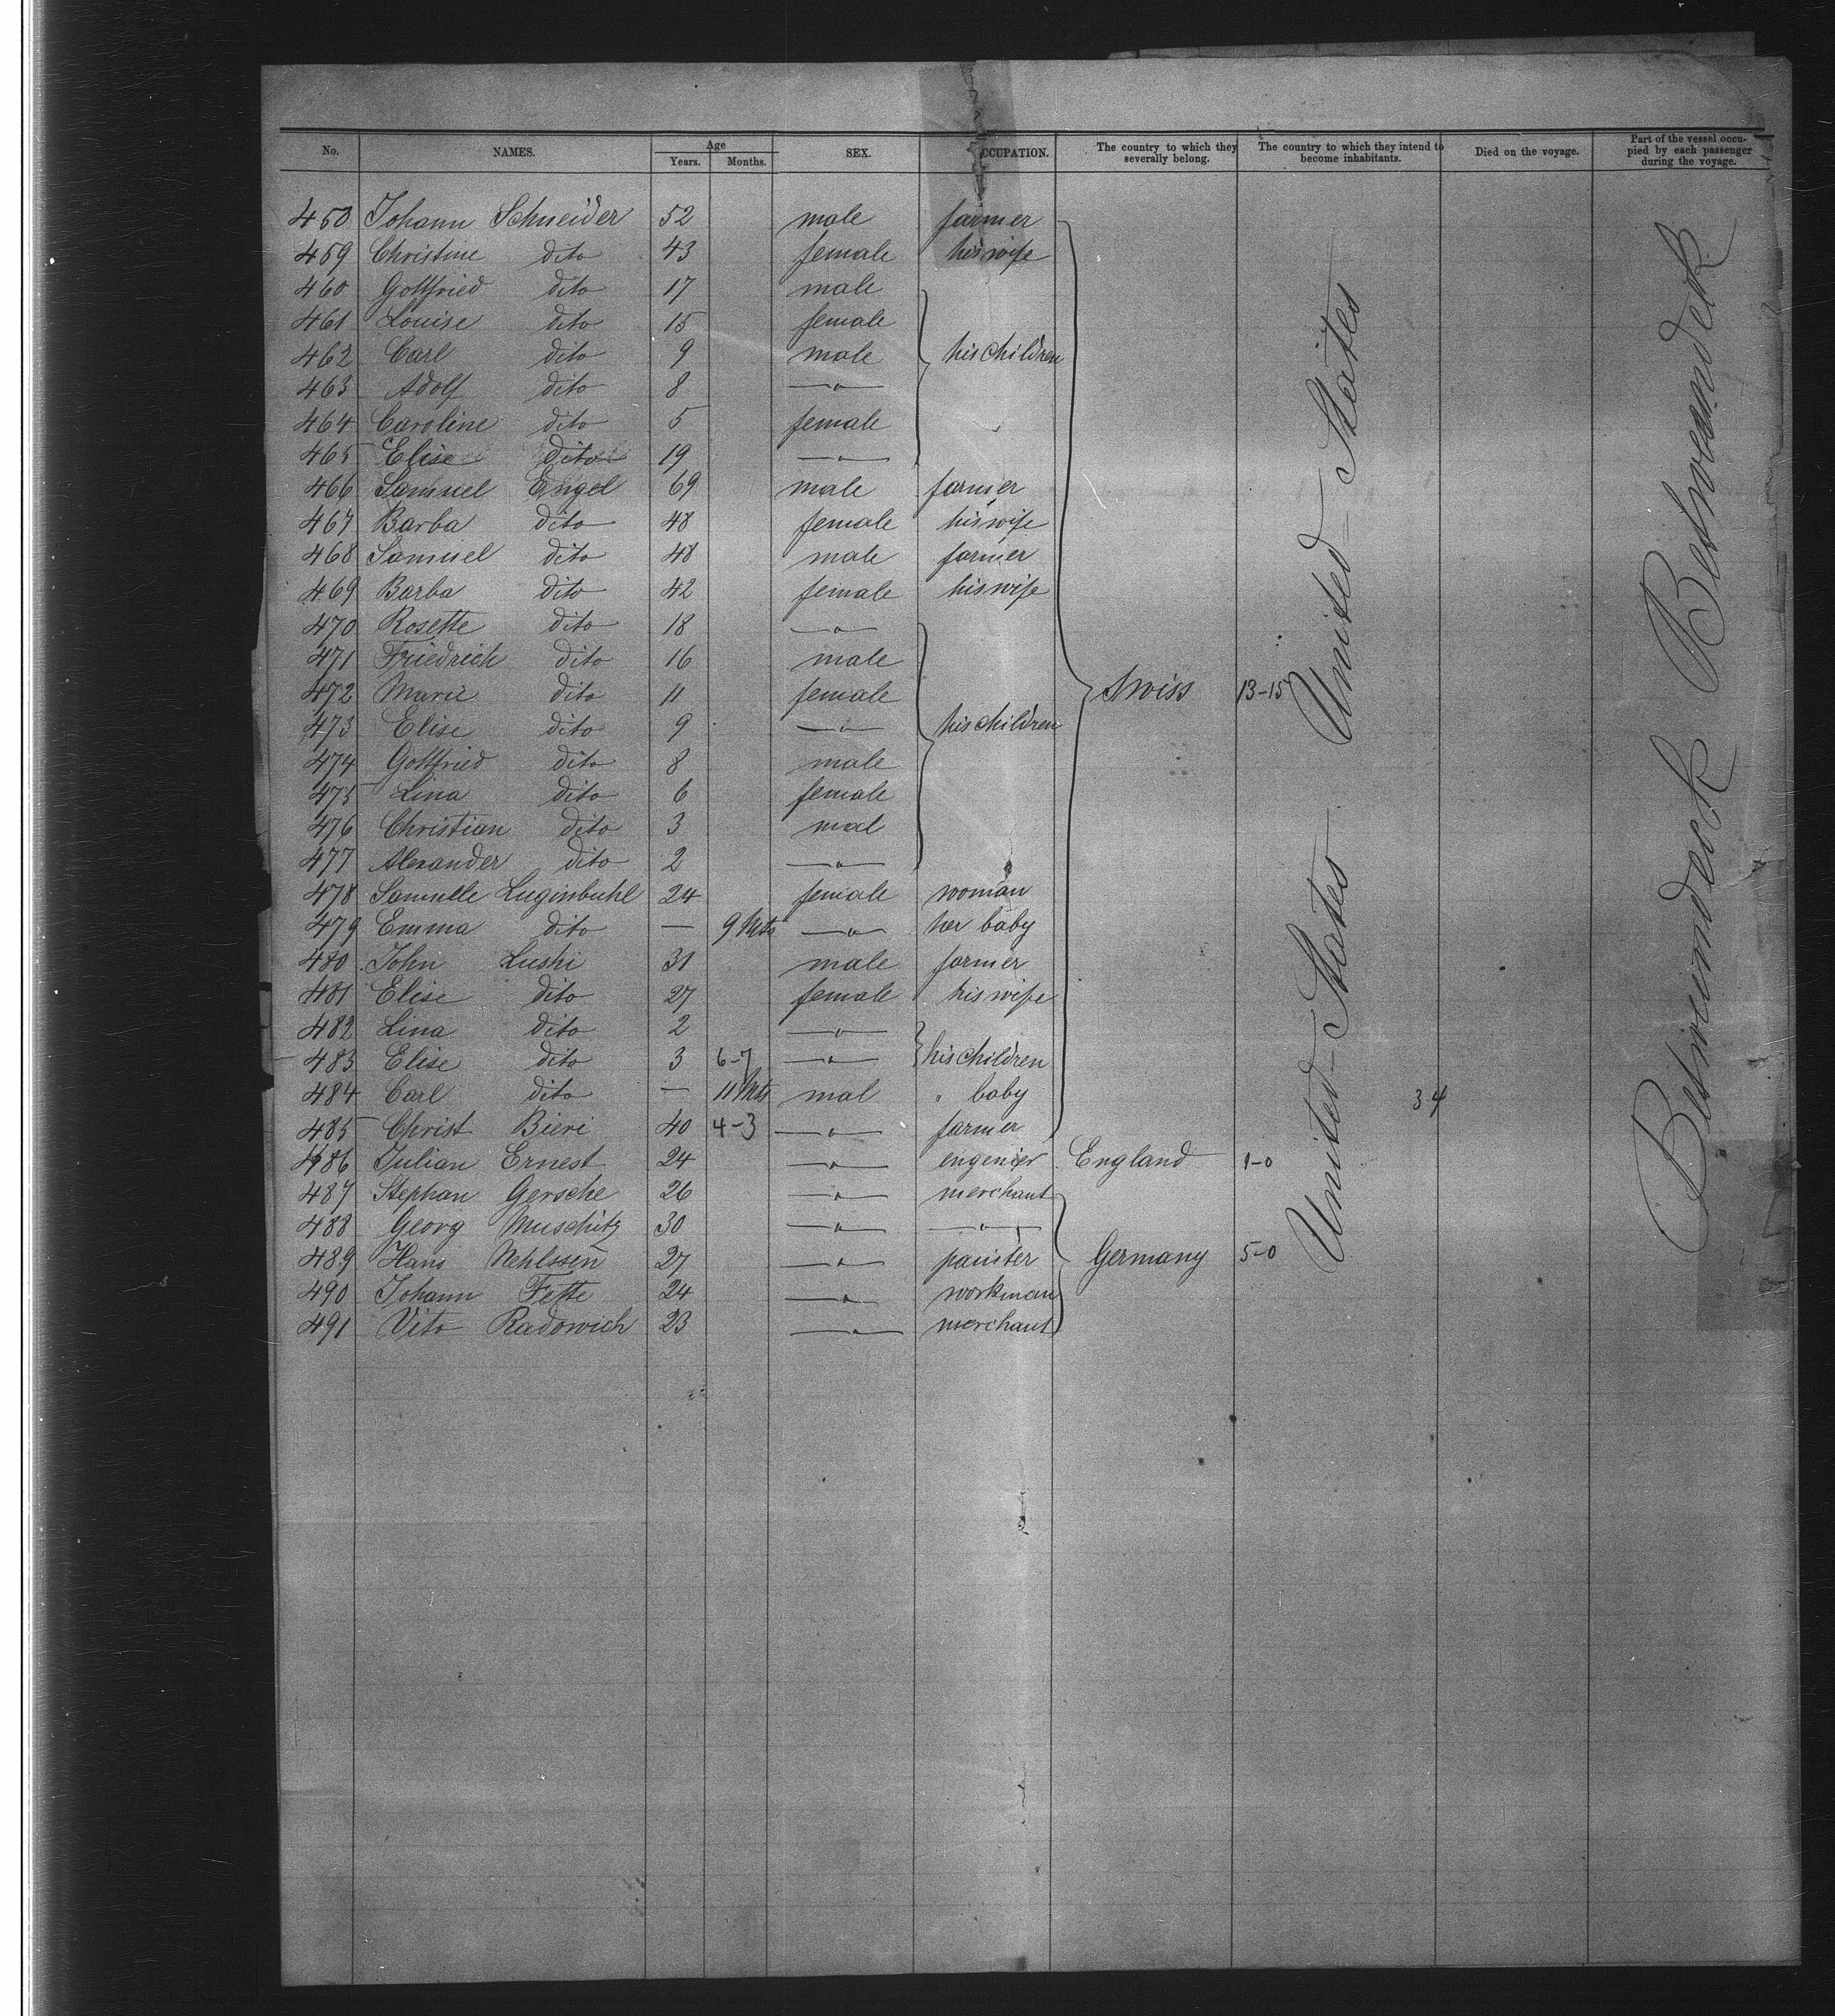 No. NAMES. Age Years. Months. SEX. OCCUPATION. The country to which they severally belong. The country to which they intend to become inhabitants. Died on the voyage. Part of the vessel occupied by each passenger during the voyage.
458 Johann Schneider 52 male farmer
459 Christine dito 43 female his wife
460 Gottfried dito 17 male
461 Louise dito 15 female
462 Carl dito 9 male his children
463 Adolf dito 8 —"—
464 Caroline dito 5 female
465 Elise dito 19 —"—
466 Samuel Engel 69 male farmer
467 Barba dito 48 female his wife
468 Samuel dito 48 male farmer
469 Barba dito 42 female his wife
470 Rosette dito 18 —"—
471 Friedrich dito 16 male
472 Marie dito 11 female Swiss 13-15
473 Elise dito 9 —"— his children
474 Gottfried dito 8 male
475 Lina dito 6 female
476 Christian dito 3 mal
477 Alexander dito 2 —"—
478 Samuelle Luginbuhl 24 female woman
479 Emma dito — 9 Mts —"— her baby
480 John Lushi 31 male farmer
481 Elise dito 27 female his wife
482 Lina dito 2 —"—
483 Elise dito 3 6-7 —"— his children
484 Carl dito — 11 Mts mal " baby 34
485 Christ Bieri 40 4-3 —"— farmer
486 Julian Ernest 24 —"— engenier England 1-0
487 Stephan Gersche 26 —"— merchant
488 Georg Muschitz 30 —"— —"—
489 Hans Nehlssen 27 —"— painter Germany 5-0
490 Johann Fette 24 —"— workman
491 Vito Radowich 23 —"— merchant
United-States United-States
Betweendeck Betweendeck